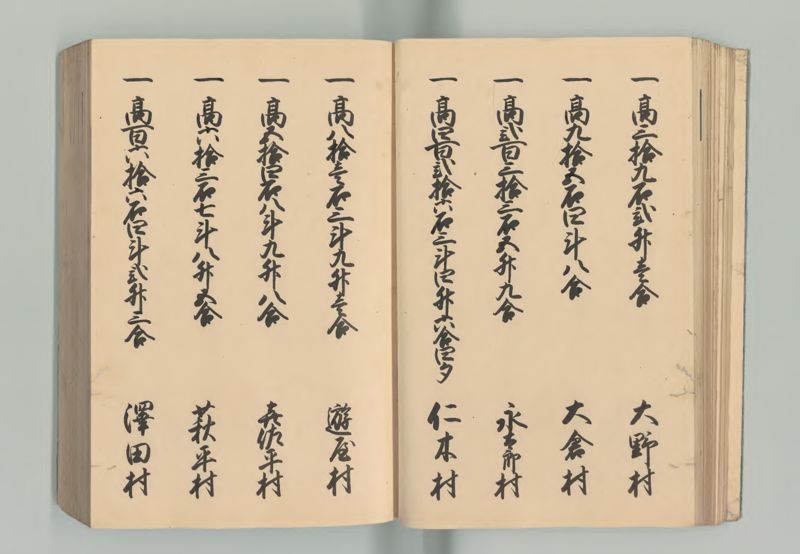 一 高三拾九石弐升壱合 大野村
一 高九拾五石四斗八合 大倉村
一 高弐百三拾三石五升九合 永太郎村
一 高四百弐拾六石三斗四升六合四夕 仁木村
一 高八拾壱石三斗九升壱合 遊屋村
一 高五拾四石八斗九升八合 喜佐平村
一 高六拾三石七斗八升五合 萩平村
一 高百六拾六石四斗弐升三合 澤田村